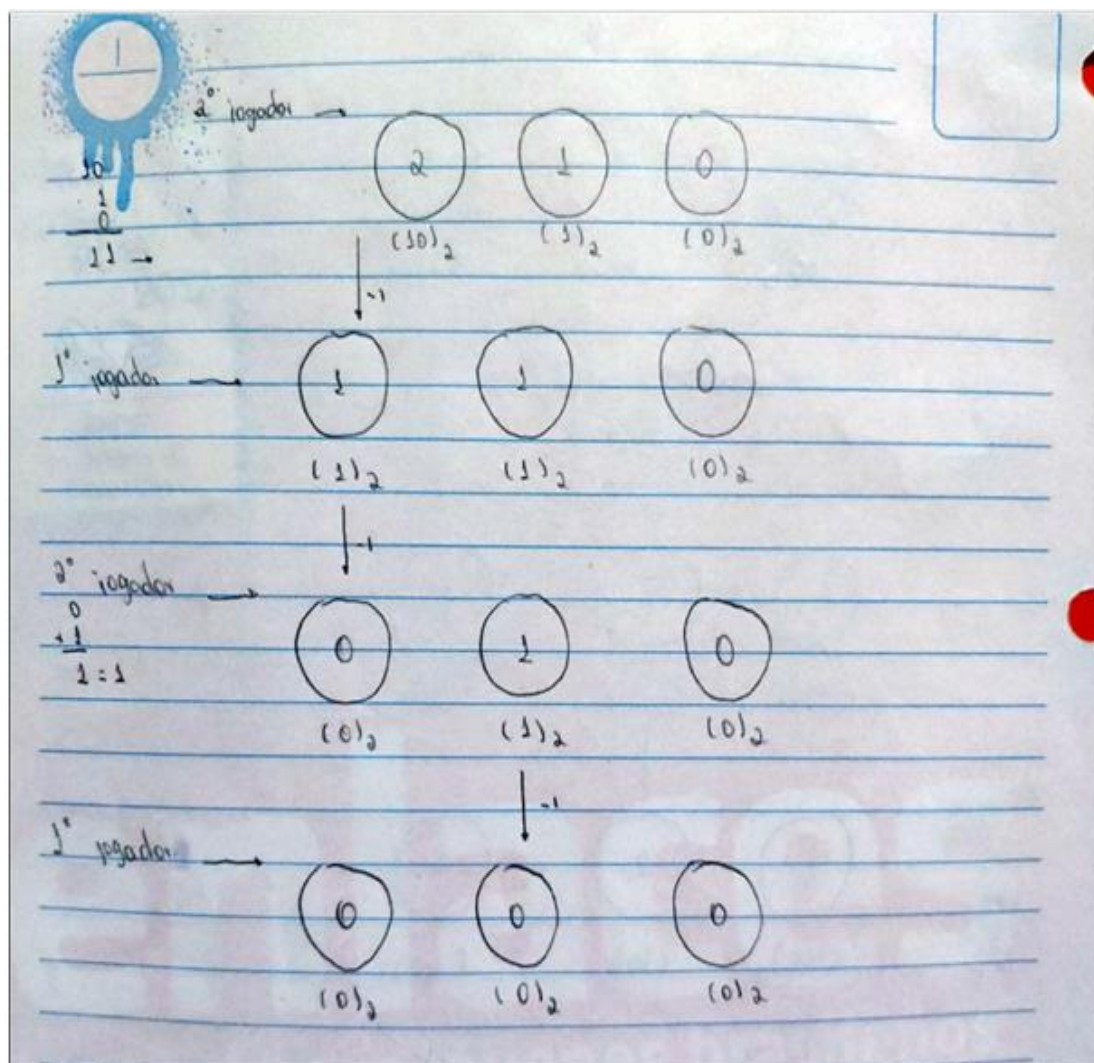 2º jogador →
2 1 0
10
1
0
11 →
(10)₂ (1)₂ (0)₂
-1
1º jogador →
1 1 0
(1)₂ (1)₂ (0)₂
-1
2º jogador →
0
+1
1 = 1
0 1 0
(0)₂ (1)₂ (0)₂
-1
1º jogador →
0 0 0
(0)₂ (0)₂ (0)₂